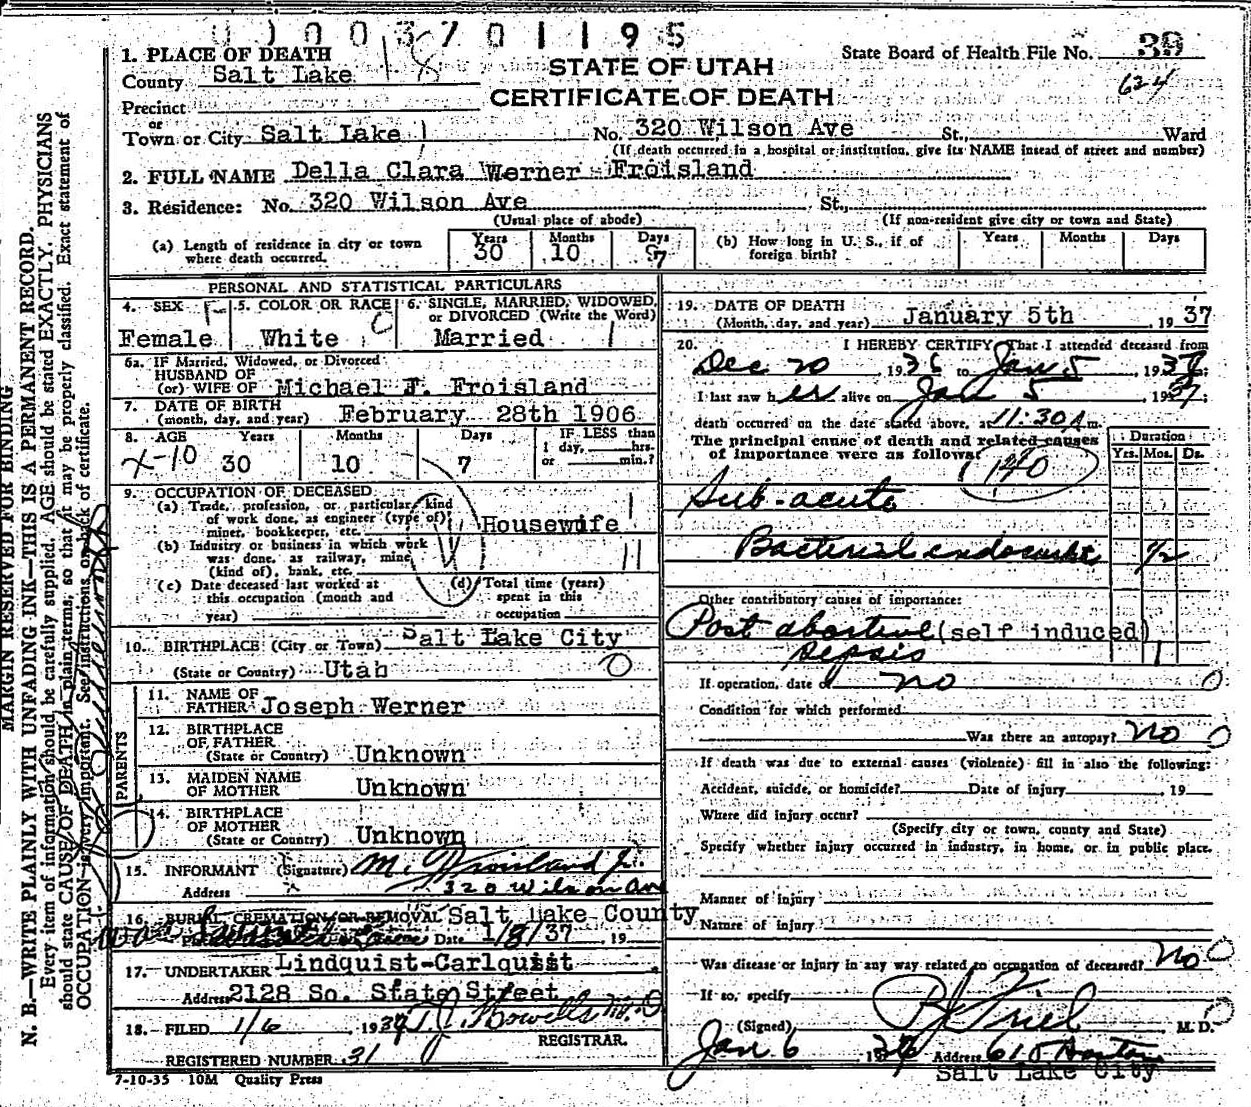 0000370 1195
1. PLACE OF DEATH
County Salt Lake 18
State Board of Health File No. 39
STATE OF UTAH
624
CERTIFICATE OF DEATH
Precinct
or
Town or City Salt Lake 1 No. 320 Wilson Ave St., Ward
(If death occurred in a hospital or institution, give its NAME instead of street and number)
2. FULL NAME Della Clara Werner Froisland
3. Residence: No. 320 Wilson Ave St.,
(Usual place of abode) (If non-resident give city or town and State)
(a) Length of residence in city or town where death occurred. Years 30 Months 10 Days 7
(b) How long in U. S., if of foreign birth? Years Months Days
PERSONAL AND STATISTICAL PARTICULARS
4. SEX F
Female
5. COLOR OR RACE
White
6. SINGLE, MARRIED, WIDOWED,
or DIVORCED (Write the Word)
Married
6a. IF Married, Widowed, or Divorced
HUSBAND OF
(or) WIFE OF Michael F. Froisland
7. DATE OF BIRTH
(month, day, and year) February 28th 1906
8. AGE Years Months Days IF LESS than
1 day, hrs.
or min.?
30 10 7
9. OCCUPATION OF DECEASED
(a) Trade, profession, or particular kind
of work done, as engineer (type of)
miner, bookkeeper, etc. Housewife
(b) Industry or business in which work
was done, as railway, mine
(kind of), bank, etc.
(c) Date deceased last worked at
this occupation (month and
year)
(d) Total time (years)
spent in this
occupation
10. BIRTHPLACE (City or Town) Salt Lake City
(State or Country) Utah
PARENTS
11. NAME OF
FATHER Joseph Werner
12. BIRTHPLACE
OF FATHER
(State or Country) Unknown
13. MAIDEN NAME
OF MOTHER Unknown
14. BIRTHPLACE
OF MOTHER
(State or Country) Unknown
15. INFORMANT (Signature) M. Froisland Jr.
Address 320 Wilson Ave
16. BURIAL, CREMATION, OR REMOVAL Salt Lake County
Date 1/8/37, 19
17. UNDERTAKER Lindquist-Carlquist
Address 2128 So. State Street
18. FILED 1/6, 1937 T. J. Howells M.D
REGISTRAR.
REGISTERED NUMBER 31
7-10-35 10M Quality Press
19. DATE OF DEATH
(Month, day, and year) January 5th, 1937
20. I HEREBY CERTIFY, That I attended deceased from
Dec 20 1936 to Jan 5, 1937;
I last saw her alive on Jan 5, 1937;
death occurred on the date stated above, at 11:30 A m.
The principal cause of death and related causes
of importance were as follows:
140
Duration
Yrs. Mos. Ds.
Sub-acute
Bacterial endocarditis 1/2
Other contributory causes of importance:
Post abortive (self induced)
sepsis
If operation, date of no
Condition for which performed
Was there an autopsy? no
If death was due to external causes (violence) fill in also the following:
Accident, suicide, or homicide? Date of injury , 19
Where did injury occur?
(Specify city or town, county and State)
Specify whether injury occurred in industry, in home, or in public place.
Manner of injury
Nature of injury
Was disease or injury in any way related to occupation of deceased? no
If so, specify
(Signed) Friel M. D.
Jan 6 1936 Address 610
Salt Lake City
MARGIN RESERVED FOR BINDING
N. B.—WRITE PLAINLY WITH UNFADING INK—THIS IS A PERMANENT RECORD.
Every item of information should be carefully supplied. AGE should be stated EXACTLY. PHYSICIANS
should state CAUSE OF DEATH in plain terms, so that it may be properly classified. Exact statement of
OCCUPATION is very important. See instructions on back of certificate.